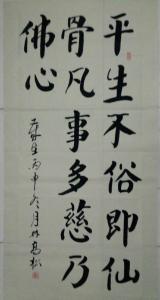 平生不俗即仙
骨凡事多慈乃
佛心
丙申冬月